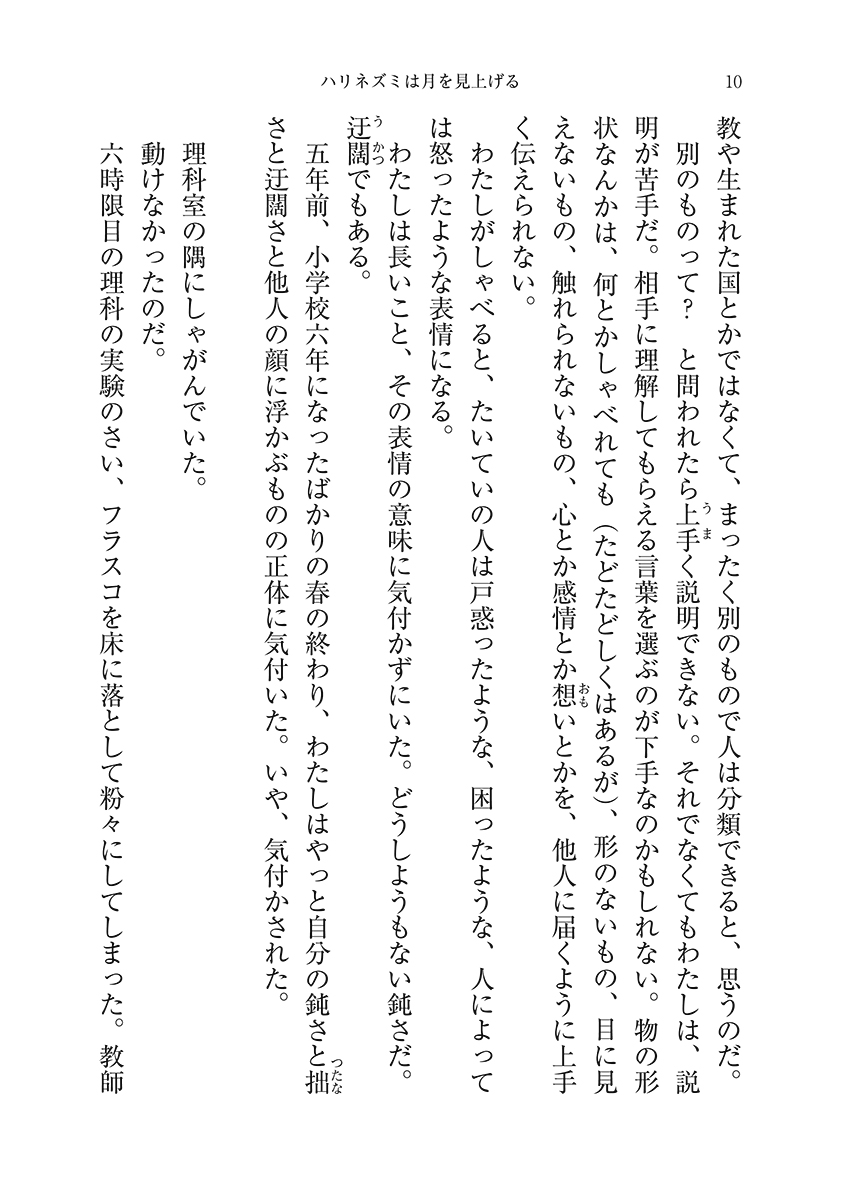 ハリネズミは月を見上げる
10
教や生まれた国とかではなくて、まったく別のもので人は分類できると、思うのだ。
別のものって？　と問われたら上手く説明できない。それでなくてもわたしは、説
うま
明が苦手だ。相手に理解してもらえる言葉を選ぶのが下手なのかもしれない。物の形
状なんかは、何とかしゃべれても（たどたどしくはあるが）、形のないもの、目に見
えないもの、触れられないもの、心とか感情とか想いとかを、他人に届くように上手
おも
く伝えられない。
わたしがしゃべると、たいていの人は戸惑ったような、困ったような、人によって
は怒ったような表情になる。
わたしは長いこと、その表情の意味に気付かずにいた。どうしようもない鈍さだ。
迂闊でもある。
うかつ
五年前、小学校六年になったばかりの春の終わり、わたしはやっと自分の鈍さと拙
つたな
さと迂闊さと他人の顔に浮かぶものの正体に気付いた。いや、気付かされた。
理科室の隅にしゃがんでいた。
動けなかったのだ。
六時限目の理科の実験のさい、フラスコを床に落として粉々にしてしまった。教師